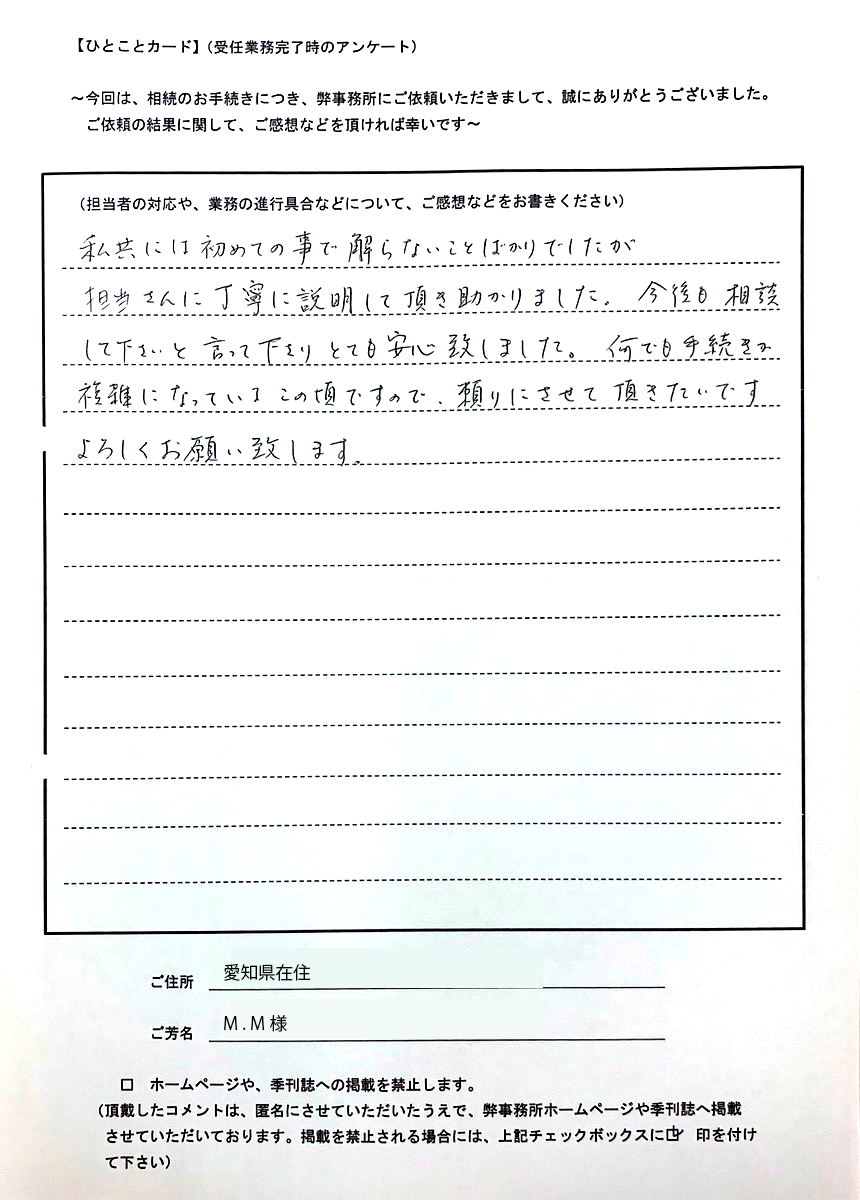 【ひとことカード】(受任業務完了時のアンケート)
～今回は、相続のお手続きにつき、弊事務所にご依頼いただきまして、誠にありがとうございました。
ご依頼の結果に関して、ご感想などを頂ければ幸いです～
(担当者の対応や、業務の進行具合などについて、ご感想などをお書きください)
私共には初めての事で解らないことばかりでしたが
担当さんに丁寧に説明して頂き助かりました。今後も相談
して下さいと言って下さりとても安心致しました。何でも手続きが
複雑になっているこの頃ですので、頼りにさせて頂きたいです
よろしくお願い致します。
ご住所 愛知県在住
ご芳名 M.M様
□ ホームページや、季刊誌への掲載を禁止します。
(頂戴したコメントは、匿名にさせていただいたうえで、弊事務所ホームページや季刊誌へ掲載
させていただいております。掲載を禁止される場合には、上記チェックボックスに☑ 印を付け
て下さい)